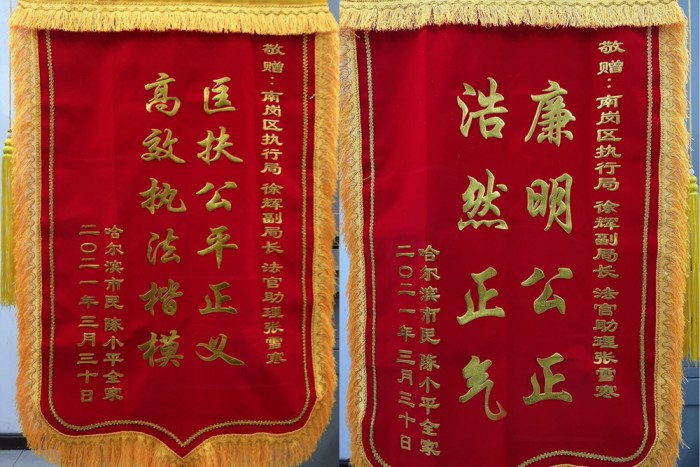 敬赠：南岗区执行局 徐辉副局长 法官助理张雪寒
匡扶公平正义
高效执法楷模
哈尔滨市民 陈小平全家
二〇二一年三月三十日
敬赠：南岗区执行局 徐辉副局长 法官助理张雪寒
廉明公正
浩然正气
哈尔滨市民 陈小平全家
二〇二一年三月三十日